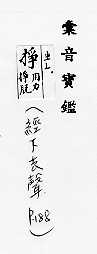 彙音寶鑑
出上。
掙
用力
掙脫
(經下去聲
P.188)